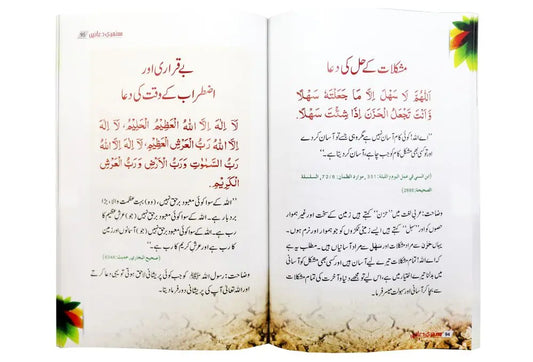 مشکلات کے حل کی دعا
اَللّٰهُمَّ لَا سَهْلَ اِلَّا مَا جَعَلْتَهٗ سَهْلًا
وَّاَنْتَ تَجْعَلُ الْحَزْنَ اِذَا شِئْتَ سَهْلًا
”اے اللہ! کوئی کام آسان نہیں مگر وہی جسے تو آسان کر دے
اور تو کسی بھی مشکل کام کو جب چاہے، آسان کر دیتا ہے۔“
(ابن السنی فی عمل الیوم واللیلۃ: 351، موارد الظمآن: 72/6، السلسلة
الصحیحة: 2886)
وضاحت: عربی لغت میں ”حزن“ کہتے ہیں زمین کے سخت اور غیر ہموار
حصوں کو اور ”سہل“ کہتے ہیں ایسے زمینی ٹکڑوں کو جو ہموار اور نرم ہوں۔
یہاں حزن سے مراد مشکلات اور سہل سے مراد آسانیاں ہیں۔ مطلب یہ ہے
کہ تمام مشکلات تیرے لیے آسان ہیں اور کسی بھی مشکل کو آسانی
میں بدلنا تیرے اختیار میں ہے، اس لیے تو مجھے دنیا و آخرت کی تمام مشکلات
سے بچا کر آسانی اور سہولت میسر فرما۔
94
سنہری دعائیں
95
بے قراری اور
اضطراب کے وقت کی دعا
لَا اِلٰهَ اِلَّا اللّٰهُ الْعَظِيْمُ الْحَلِيْمُ، لَا اِلٰهَ
اِلَّا اللّٰهُ رَبُّ الْعَرْشِ الْعَظِيْمِ، لَا اِلٰهَ اِلَّا اللّٰهُ
رَبُّ السَّمٰوٰتِ وَرَبُّ الْاَرْضِ وَرَبُّ الْعَرْشِ
الْكَرِيْمِ.
”اللہ کے سوا کوئی معبود برحق نہیں، (وہ) بہت عظمت والا، بڑا
بردبار ہے۔ اللہ کے سوا کوئی معبود برحق نہیں (جو) عرش عظیم کا
رب ہے۔ اللہ کے سوا کوئی معبود برحق نہیں، (جو) آسمانوں اور زمین
کا رب ہے اور عرش کریم کا رب ہے۔“
(صحیح البخاری، حدیث: 6346)
وضاحت: رسول اللہ ﷺ کو جب کوئی پریشانی لاحق ہوتی تو یہی دعا کرتے
اور اللہ تعالیٰ آپ کی پریشانی دور فرما دیتا۔